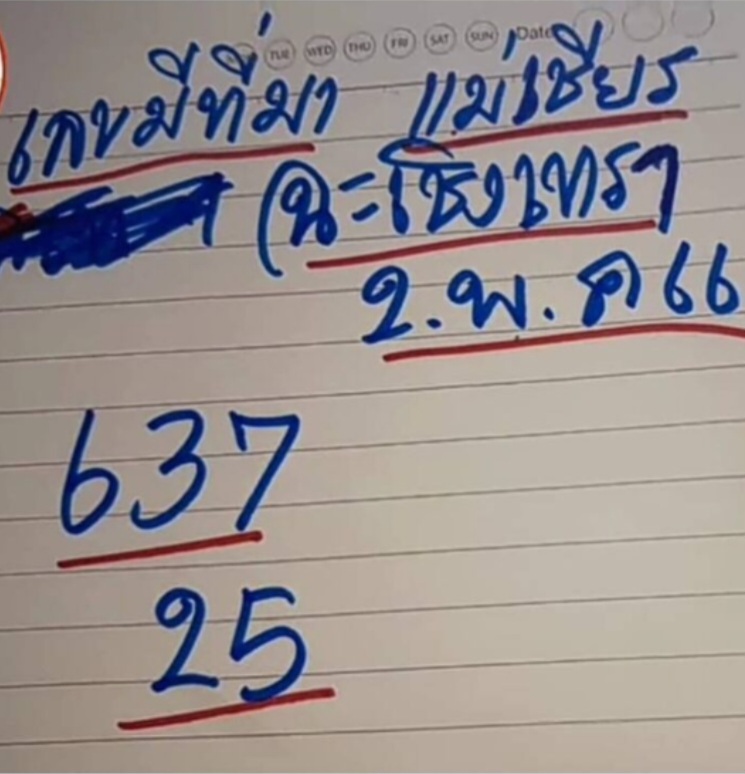 TUE WED THU FRI SAT SUN Date
เลขมีที่มา แม่เชียร
(ฉะเชิงเทรา
2.พ.ค 66
637
25